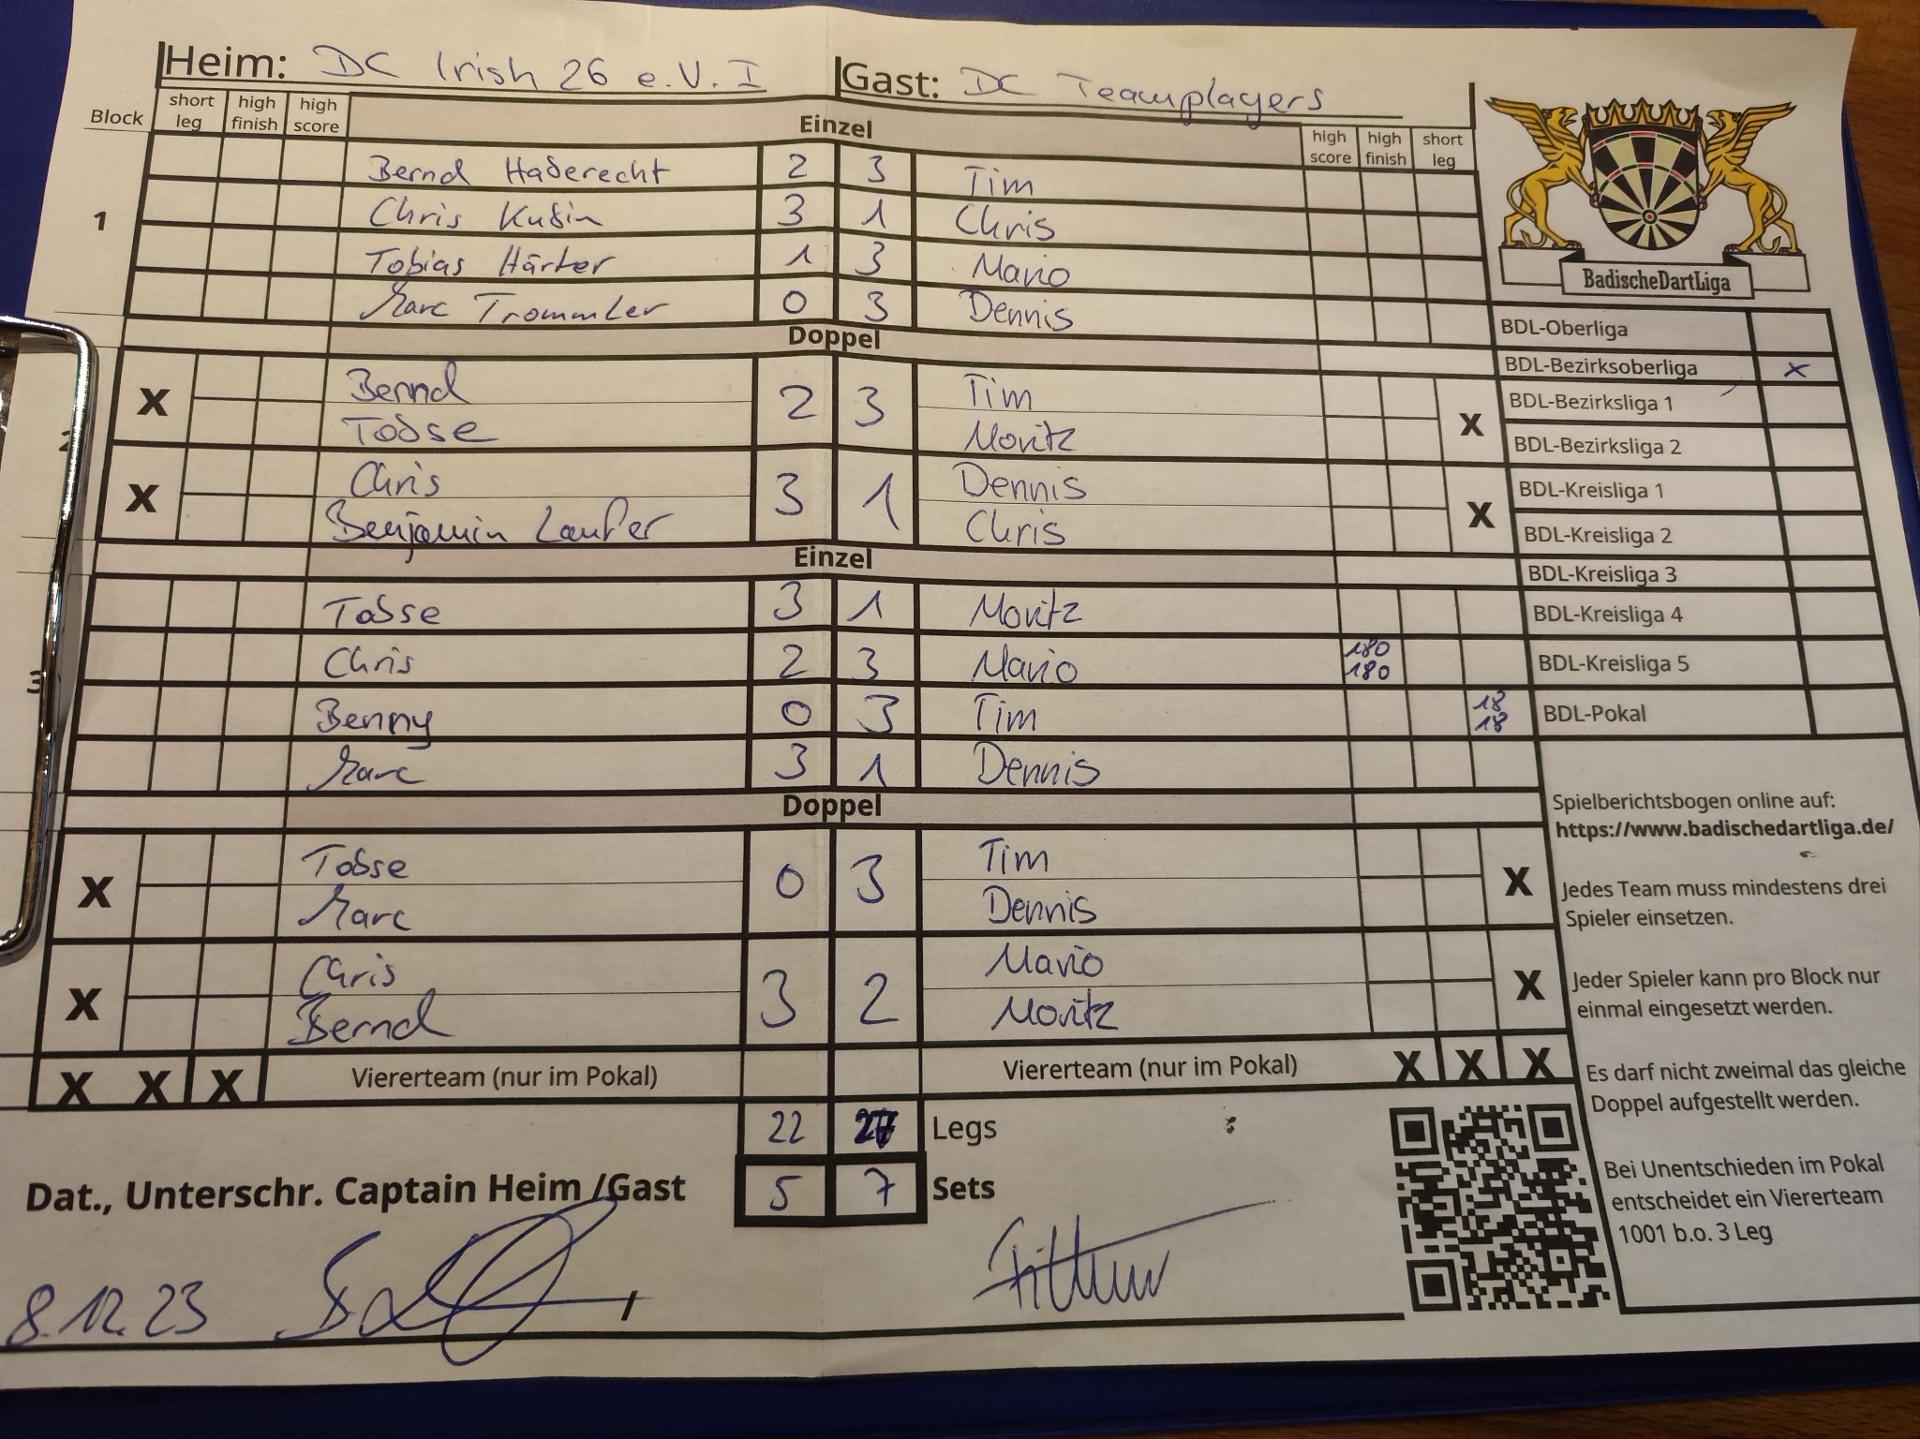 Heim: DC Irish 26 e.V. I Gast: DC Teamplayers
Block short leg high finish high score Einzel high score high finish short leg
Bernd Haderecht 2 3 Tim
1 Chris Kubin 3 1 Chris
Tobias Härter 1 3 Mario
Marc Trommler 0 3 Dennis
Doppel
X Bernd 2 3 Tim X
2 Tobse Moritz
X Chris 3 1 Dennis X
Benjamin Laufer Chris
Einzel
Tobse 3 1 Moritz
Chris 2 3 Mario 180 180
3 Benny 0 3 Tim 18 18
Marc 3 1 Dennis
Doppel
X Tobse 0 3 Tim X
Marc Dennis
X Chris 3 2 Mario X
Bernd Moritz
X X X Viererteam (nur im Pokal) Viererteam (nur im Pokal) X X X
22 27 Legs
5 7 Sets
Dat., Unterschr. Captain Heim /Gast
8.12.23 /
BadischeDartLiga
BDL-Oberliga
BDL-Bezirksoberliga x
BDL-Bezirksliga 1
BDL-Bezirksliga 2
BDL-Kreisliga 1
BDL-Kreisliga 2
BDL-Kreisliga 3
BDL-Kreisliga 4
BDL-Kreisliga 5
BDL-Pokal
Spielberichtsbogen online auf:
https://www.badischedartliga.de/
Jedes Team muss mindestens drei
Spieler einsetzen.
Jeder Spieler kann pro Block nur
einmal eingesetzt werden.
Es darf nicht zweimal das gleiche
Doppel aufgestellt werden.
Bei Unentschieden im Pokal
entscheidet ein Viererteam
1001 b.o. 3 Leg